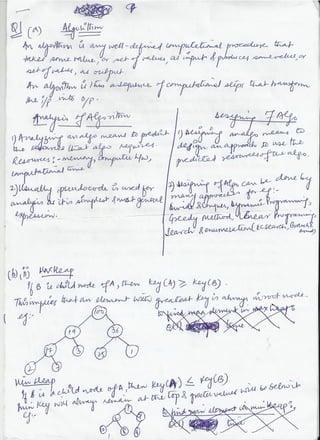 Q1 (a) Algorithm
An algorithm is any well-defined computational procedure that
takes some value, or set of values as input & produces some value, or
set of values, as output.
An algorithm is thus a sequence of computational steps that transform
the i/p into o/p.
Analysis of Algorithm
1) Analyzing an algo means to predict
the resources that algo requires
Resources:- memory, computer h/w,
computational time
2) Usually, pseudocode is used for
analysis as it is simplest & most general
expression.
Designing of Algo
1) Designing an algo means to
design an approach to use the
predicted resources of the algo.
2) Designing of Algos can be done by
many approaches for eg:-
Divide & Conquer, Dynamic Programming,
Greedy Method, Linear Programming,
Search & enumeration
(b) (i) Max Heap
If B is child node of A, then key(A) ≥ key(B).
This implies that an element with greatest key is always in root node.
eg:-
100
19 36
17 3 25 1
2 7
Min Heap
If B is a child node of A, then key(A) ≤ key(B)
Min key will always remain at the top & greater values will be below it
eg:-